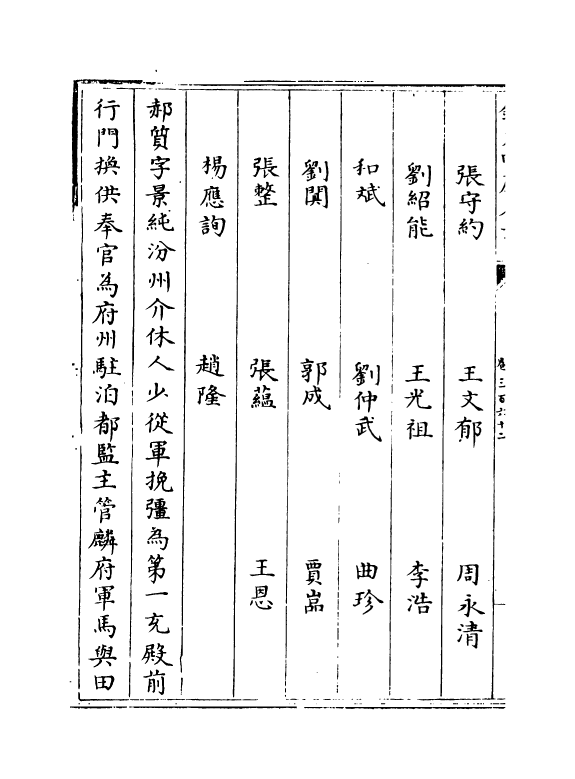 卷三百六十二
張守約 王文郁 周永清
劉紹能 王光祖 李浩
和斌 劉仲武 曲珍
劉闃 郭成 賈嵓
張整 張蘊 王恩
楊應詢 趙隆
郝質字景純汾州介休人少從軍挽彊為第一充殿前
行門換供奉官為府州駐泊都監主管麟府軍馬與田